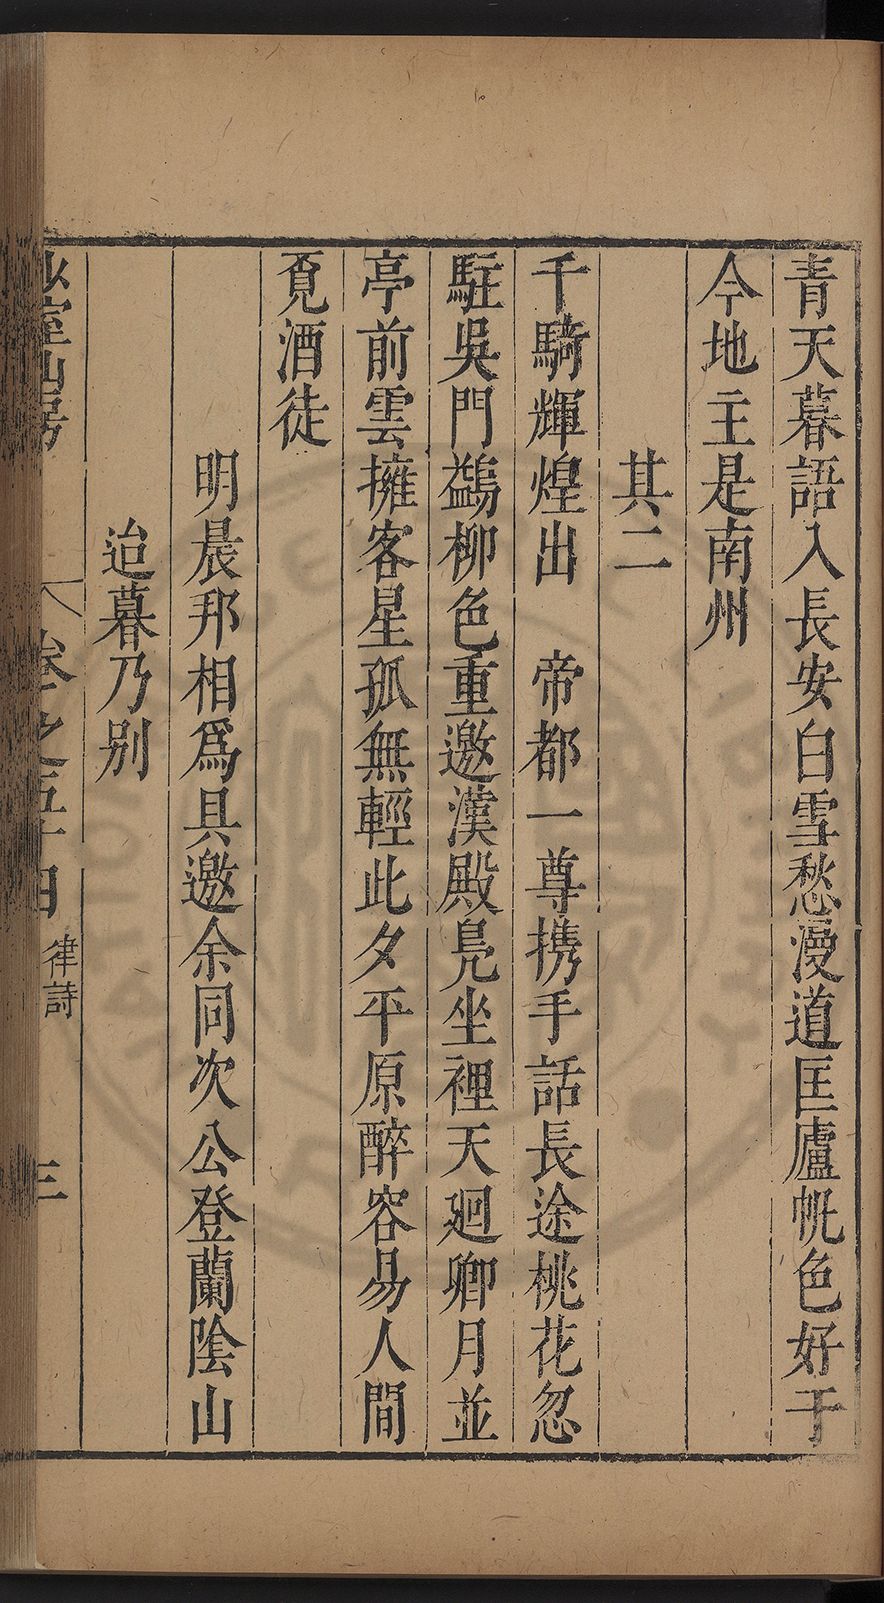 青天暮語入長安白雪愁漫道匡廬帆色好于
今地主是南州
其二
千騎輝煌出　帝都一尊携手話長途桃花忽
駐吳門鷁柳色重邀漢殿鳧坐裡天廻卿月並
亭前雲擁客星孤無輕此夕平原醉容易人間
覓酒徒
明晨邦相爲具邀余同次公登蘭陰山
迨暮乃别
少室山房
卷之五十四
律詩
三